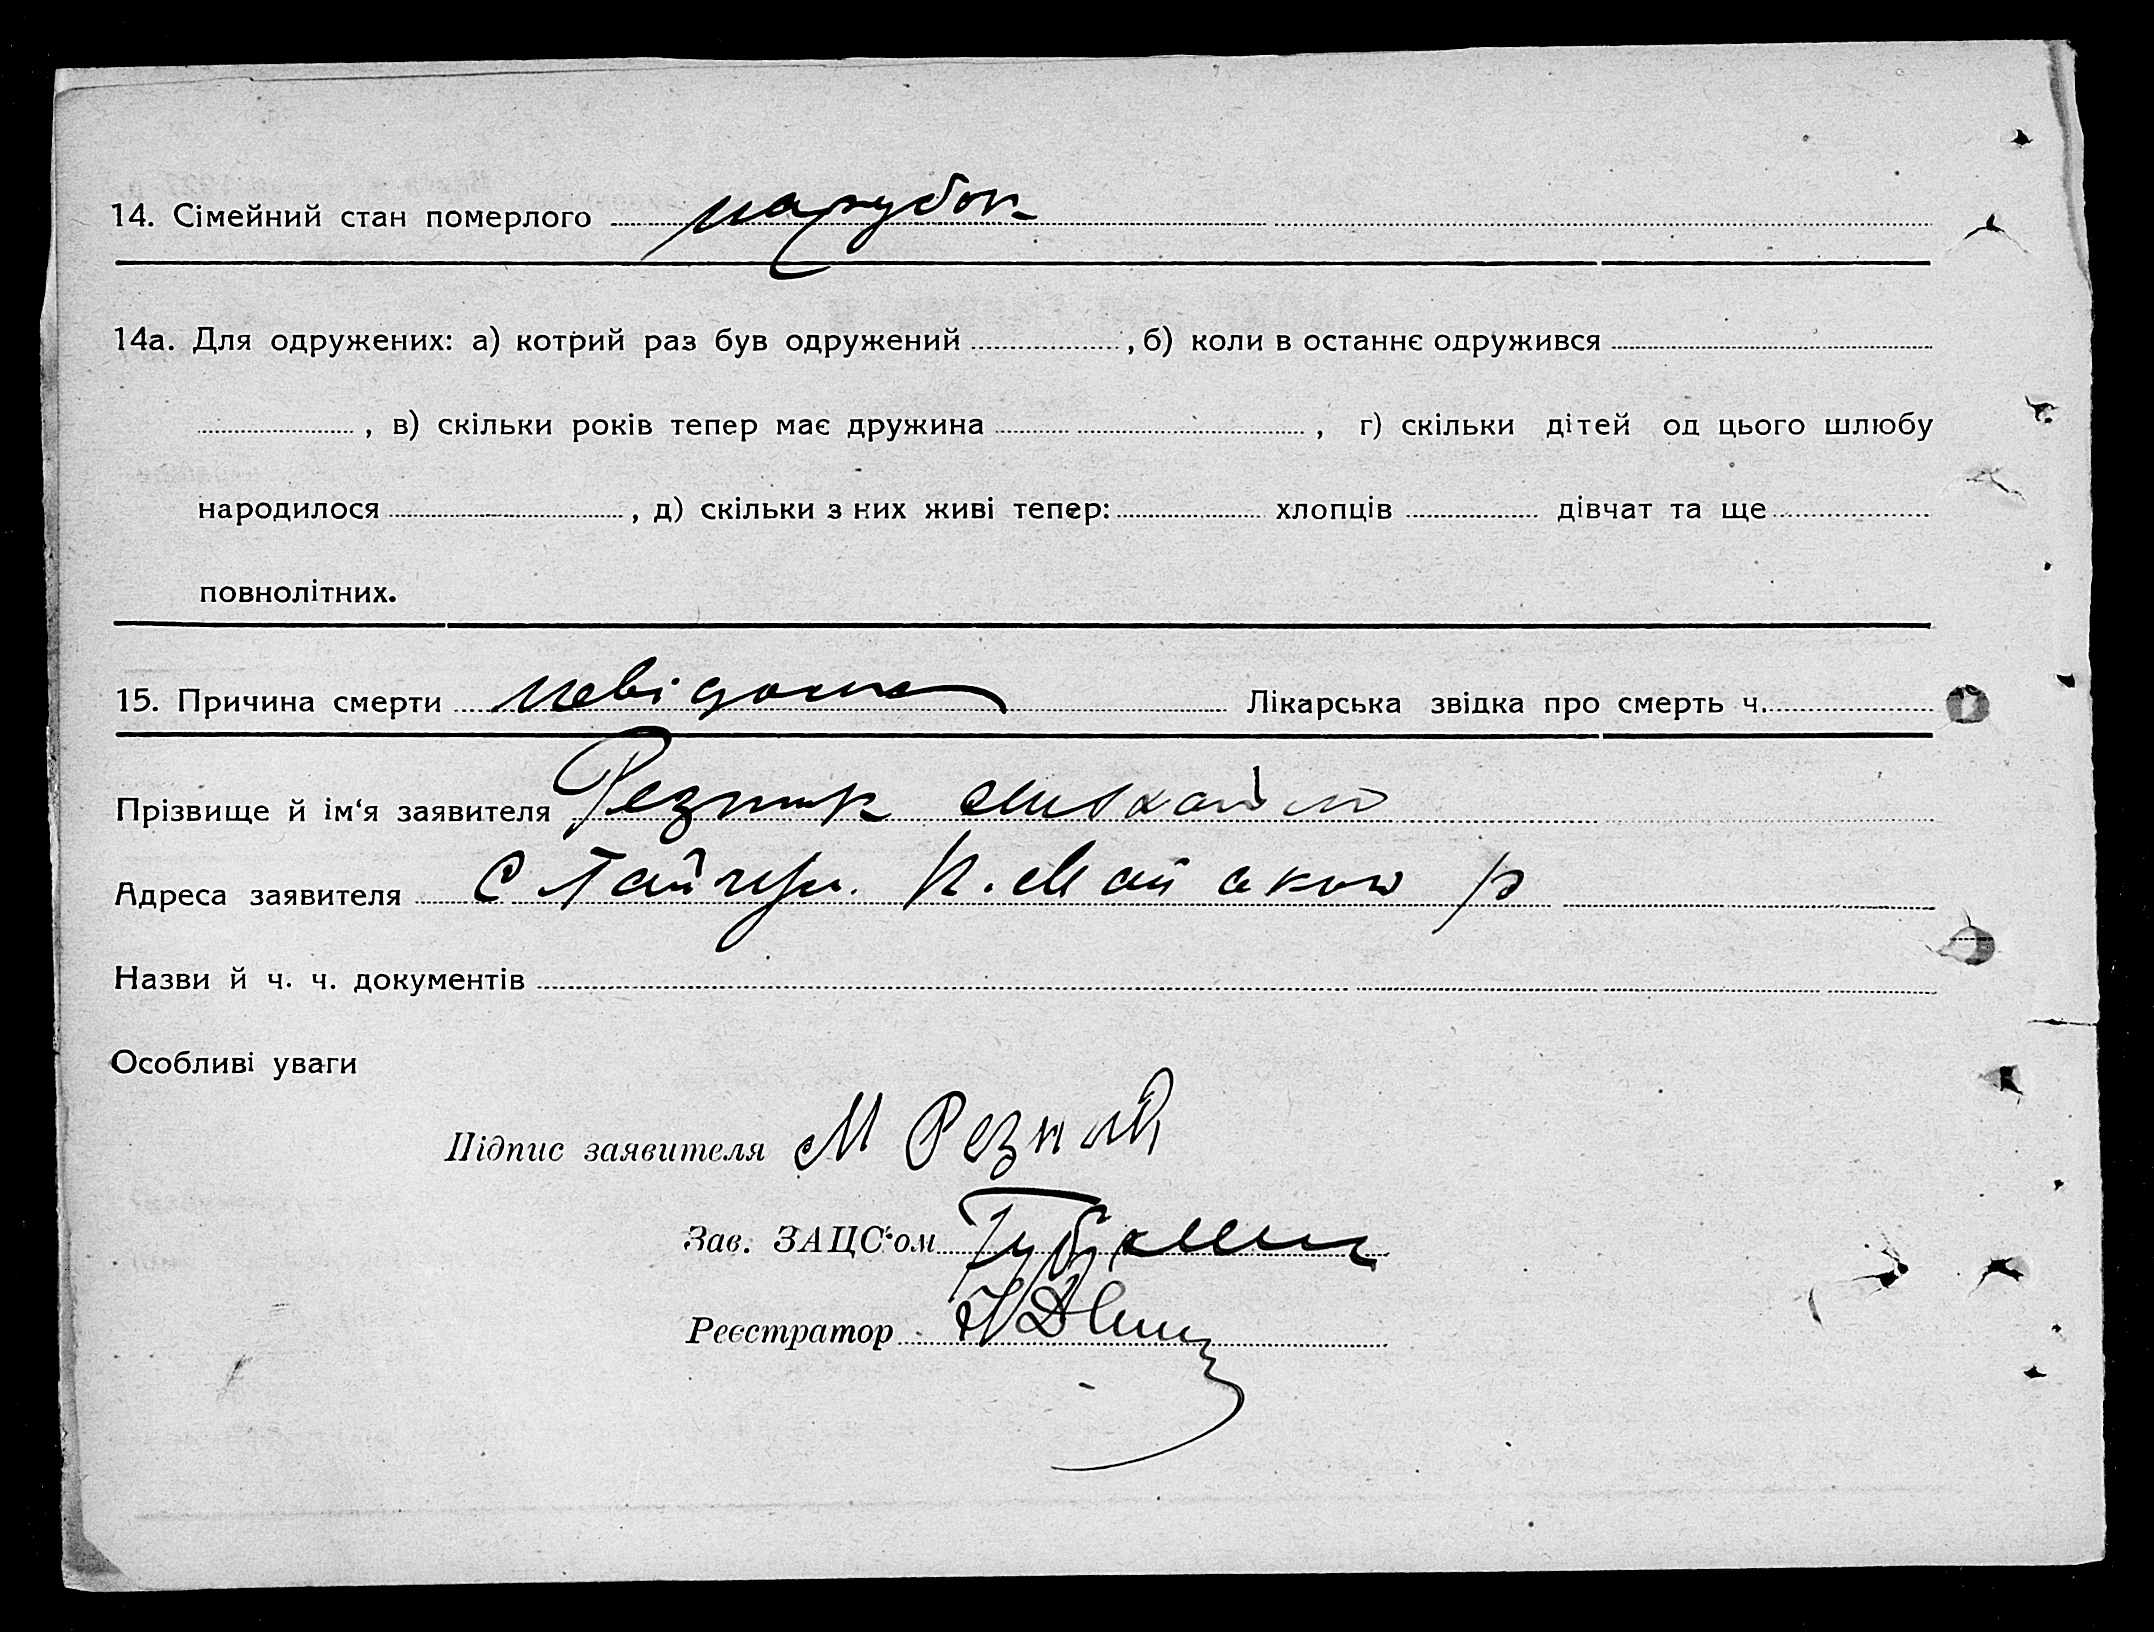 14. Сімейний стан померлого парубок
14а. Для одружених: а) котрий раз був одружений , б) коли в останнє одружився
, в) скільки років тепер має дружина , г) скільки дітей од цього шлюбу
народилося , д) скільки з них живі тепер: хлопців дівчат та ще
повнолітних.
15. Причина смерти невідома Лікарська звідка про смерть ч.
Прізвище й ім‘я заявителя Резник Михайло
Адреса заявителя С
Назви й ч. ч. документів
Особливі уваги
Підпис заявителя М Резник
Зав. ЗАЦС‘ом
Реєстратор